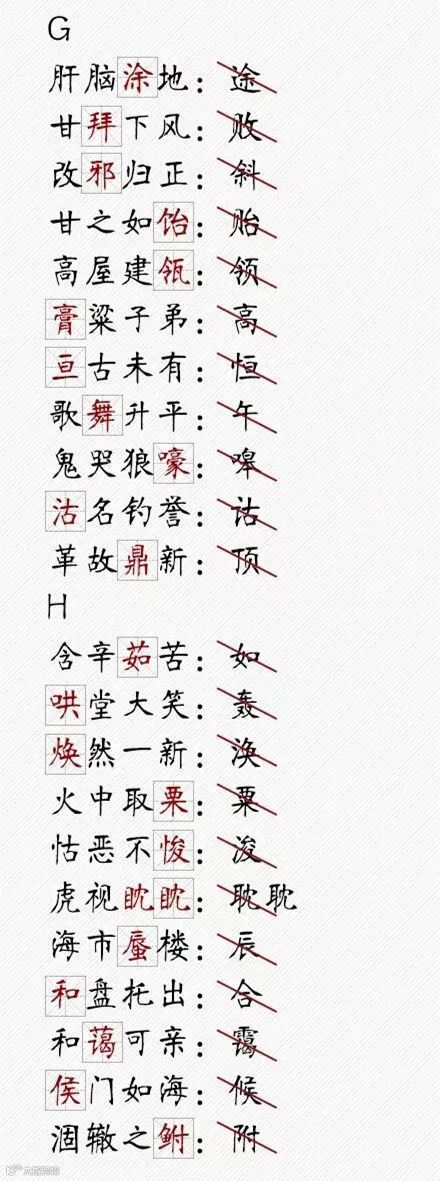 G
肝脑涂地：途
甘拜下风：败
改邪归正：斜
甘之如饴：贻
高屋建瓴：领
膏粱子弟：高
亘古未有：恒
歌舞升平：午
鬼哭狼嚎：嗥
沽名钓誉：诂
革故鼎新：顶
H
含辛茹苦：如
哄堂大笑：轰
焕然一新：涣
火中取栗：粟
怙恶不悛：浚
虎视眈眈：耽耽
海市蜃楼：辰
和盘托出：合
和蔼可亲：霭
侯门如海：候
涸辙之鲋：附